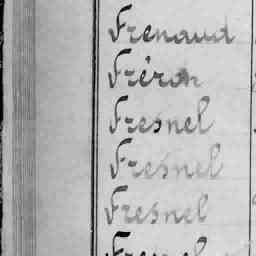 Frenaud
Fréron
Fresnel
Fresnel
Fresnel
Fresnel